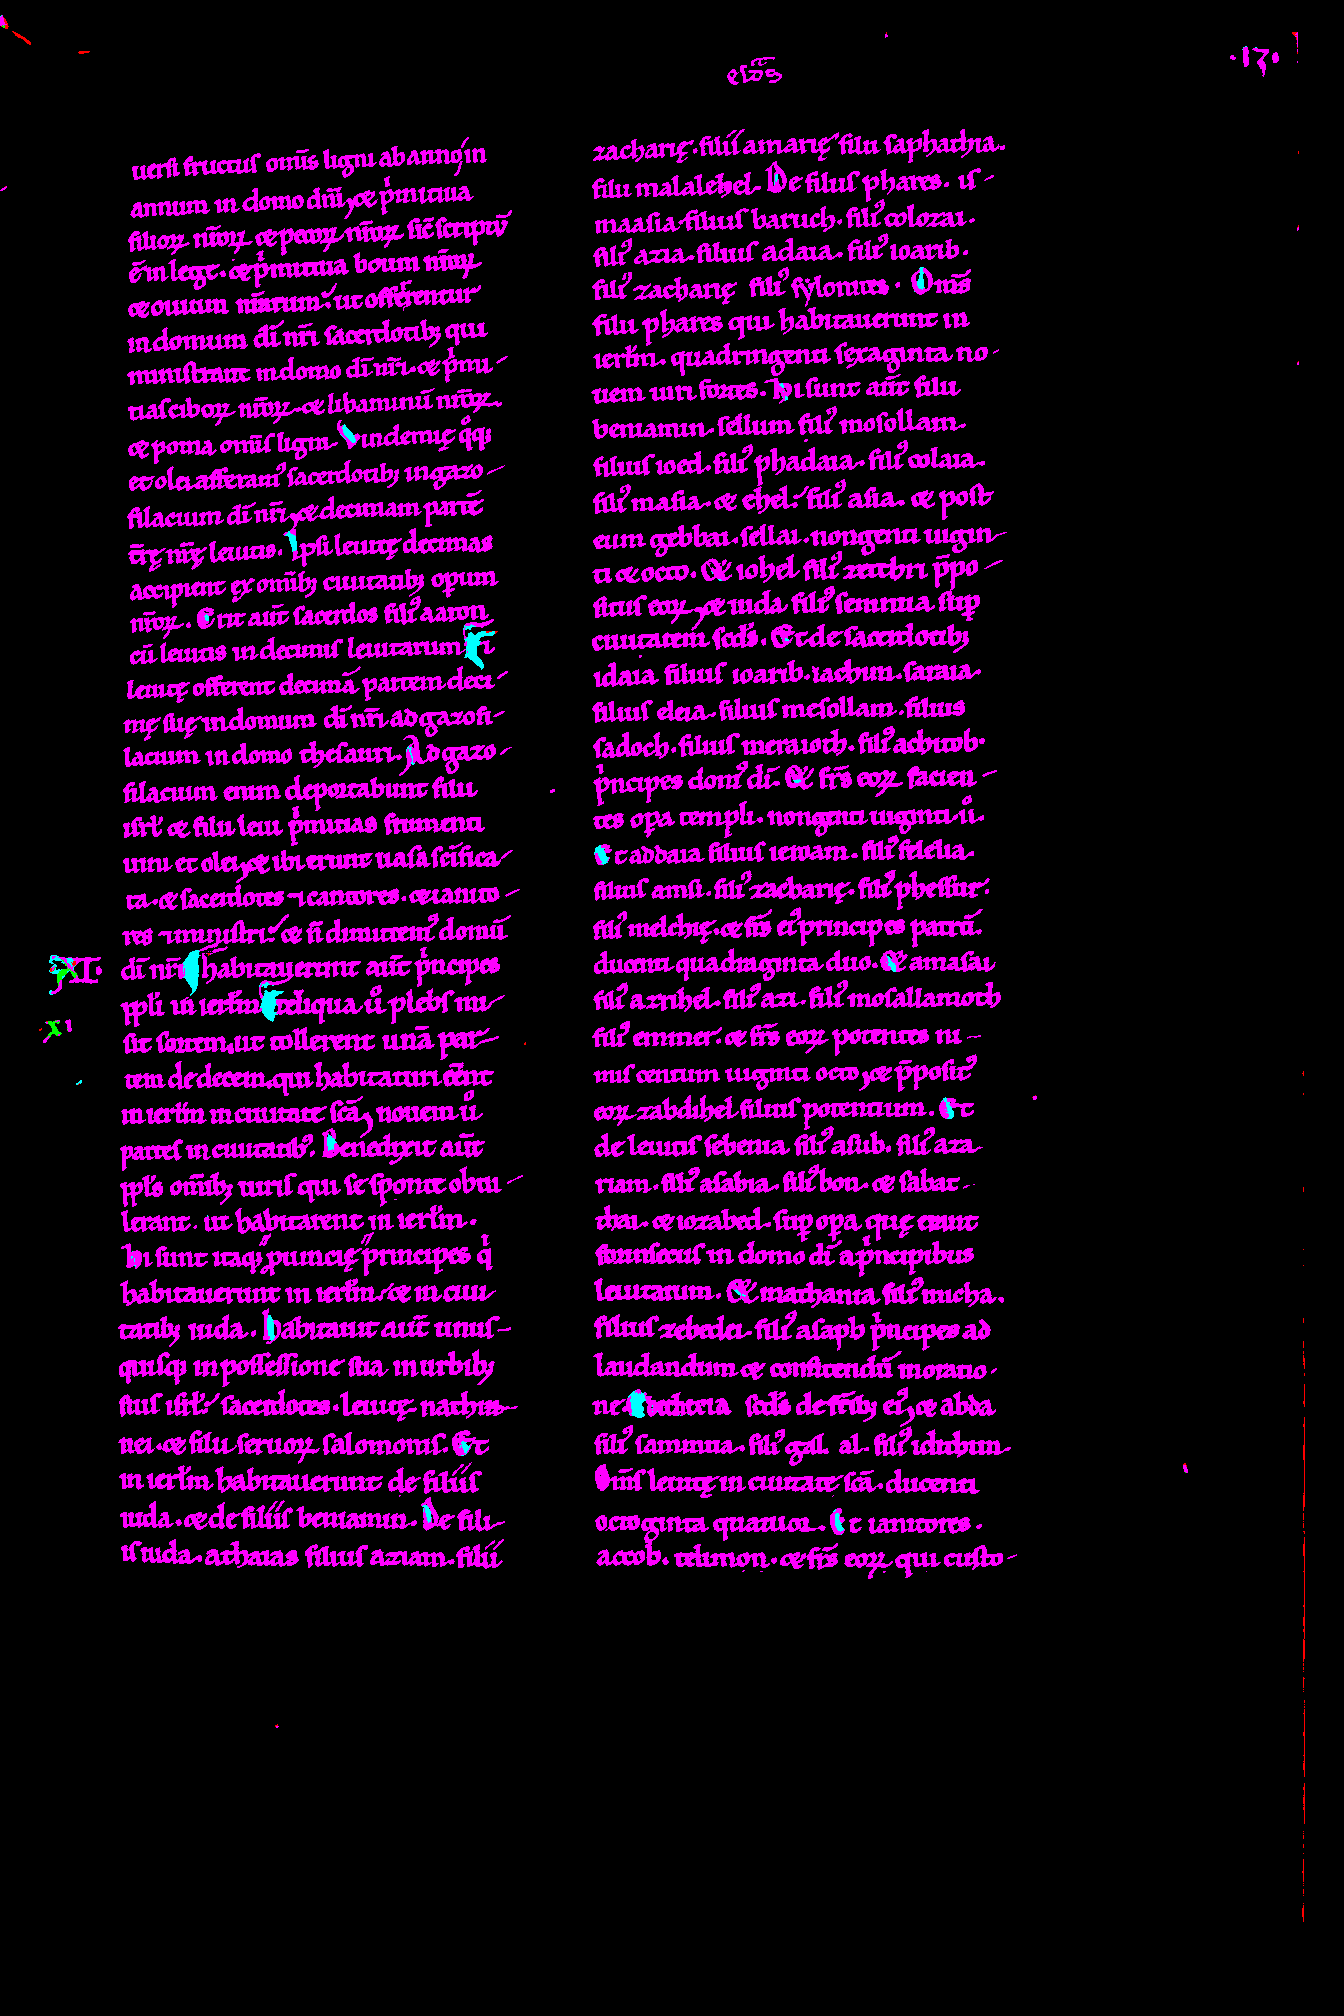 esdre
·17·
uersi fructus om̄is ligni ab anno in
annum in domo dn̄i, et p̾mitiua
filioꝝ nr̄oꝝ et pecoꝝ nr̄oꝝ sic̄ scriptū
ē in lege. et p̾mitiua boum nr̄oꝝ
et ouium nr̄arum: ut offerentur
in domum di̅ nr̄i sacerdotibꝫ qui
ministrant in domo di̅ nr̄i. et p̾mi
tias ciboꝝ nr̄oꝝ. et libaminū nr̄oꝝ.
et poma om̄is ligni. Vindemię q̊qꝫ
et olei afferam᾿ sacerdotibꝫ in gazo
filacium di̅ nr̄i, et decimam partē
tr̄ę nr̄ę leuitis. Ipsi leuitę decimas
accipient ex om̄ibꝫ ciuitatibꝫ operum
nr̄oꝝ. Erit aut̄ sacerdos fili᾿ aaron
cū leuitis in decimis leuitarum Et
leuitę offerent decimā partem deci
mę suę in domum di̅ nr̄i ad gazofi
lacium in domo thesauri. Ad gazo
filacium enim deportabunt filii
isrł et filii leui p̾mitias frumenti
uini et olei, et ibi erunt uasa sc̄ifica
ta. et sacerdotes ⁊ cantores. et ianito
res ⁊ ministri: et n̄ dimittem᾿ domū
di̅ nr̄i Habitauerunt aut̄ p̾ncipes
XI.
ppłi in ierłm reliqua ů plebs mi
xi
sit sortem, ut tollerent unā par
tem de decem. qui habitaturi eēnt
in ierłm in ciuitate sc̄a, nouem ů
partes in ciuitatib᾿. Benedixit aut̄
ppłs om̄ibꝫ uiris qui se sponte obtu
lerant. ut habitarent in ierłm.
Hi sunt itaqꝫ puincię principes q̾
habitauerunt in ierłm et in ciui
tatibꝫ iuda. Habitauit aut̄ unus
quisqꝫ in possessione sua in urbibꝫ
suis isrł. sacerdotes. leuitę. nathin
nei. et filii seruoꝝ salomonis. Et
in ierłm habitauerunt de filiis
iuda. et de filiis beniamin. De fili
is iuda. athaias filius aziam. filii
zacharię. filii amarię filii saphathia.
filii malalehel. De filius phares. is
maasia filius baruch. fili᾿ colozai.
fili᾿ azia. filius adaia. fili᾿ ioarib.
fili᾿ zacharię fili᾿ sylonites. Om̄s
filii phares qui habitauerunt in
ierłm. quadringenti sexaginta no
uem uiri fortes. Hi sunt aut̄ filii
beniamin. sellum fili᾿ mosollam.
filius ioed. fili᾿ phadaia. fili᾿ colaia.
fili᾿ masia. et ehel. fili᾿ asia. et post
eum gebbai. sellai. nongenti uigin
ti et octo. Et iohel fili᾿ zecthri p̄po
situs eoꝝ, et iuda fili᾿ sennua sup̱
ciuitatem scd̄s. Et de sacerdotibꝫ
idaia filius ioarib. iachin. saraia.
filius eleia. filius mesollam. filius
sadoch. filius meraioth. fili᾿ achitob.
p̾ncipes dom᾿ di̅. Et fr̄s eoꝝ facien
tes op̱a templi. nongenti uiginti .ii.
Et addaia filius ieroam. fili᾿ felelia.
filius amsi. fili᾿ zacharię. fili᾿ phessur.
fili᾿ melchię. et fr̄s ei᾿ principes patrū.
ducenti quadraginta duo. Et amasai
fili᾿ azrihel. fili᾿ azi. fili᾿ mosallamoth
fili᾿ emmer. et fr̄s eoꝝ potentes ni
mis centum uiginti octo, et p̄posit᾿
eoꝝ zabdihel filius potentium. Et
de leuitis sebenia fili᾿ asub. fili᾿ aza
riam. fili᾿ asabia. fili᾿ bon. et sabat
thai. et iozabed. sup̱ op̱a quę erant
forinsecus in domo di̅ a p̾ncipibus
leuitarum. Et mathania fili᾿ micha.
filius zebedei. fili᾿ asaph p̾ncipes ad
laudandum et confitendū in oratio
ne. scd̄s de fr̄ibꝫ ei᾿, et abda
fili᾿ sammua. fili᾿ gal al. fili᾿ idithun.
Om̄s leuitę in ciuitate sc̄a. ducenti
octoginta quatuor. Et ianitores.
accob. telmon. et fr̄s eoꝝ qui custo